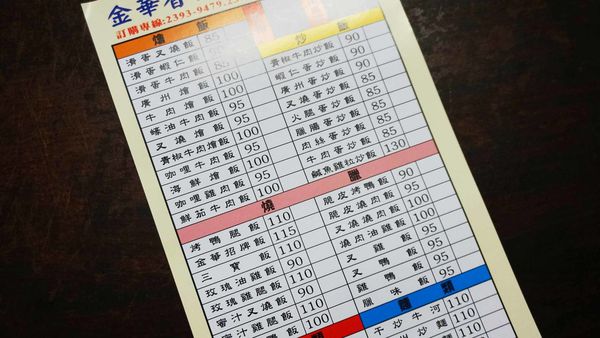 金華香
訂購專線:2393-9479.23
燴 飯
滑蛋叉燒飯 85
滑蛋蝦仁飯 90
滑蛋牛肉飯 85
廣州燴飯 100
牛肉燴飯 95
蠔油牛肉飯 95
叉燒燴飯 95
青椒牛肉燴飯 95
咖哩牛肉飯 95
海鮮燴飯 100
咖哩雞肉飯 95
鮮茄牛肉飯 100
炒 飯
青椒牛肉炒飯 90
蝦仁蛋炒飯 90
廣州蛋炒飯 90
叉燒蛋炒飯 85
火腿蛋炒飯 85
臘腸蛋炒飯 85
肉絲蛋炒飯 85
牛肉蛋炒飯 85
鹹魚雞粒炒飯 130
燒 臘
烤鴨腿飯 110
金華招牌飯 115
三寶飯 110
玫瑰油雞飯 95
玫瑰雞腿飯 110
蜜汁叉燒飯 90
蜜汁雞腿飯 110
100
脆皮烤鴨飯 90
脆皮燒肉飯 95
叉燒燒肉飯 100
燒肉油雞飯 100
叉雞飯 95
叉鴨飯 95
雞鴨飯 95
臘味飯 95
麵 類
干炒牛河 110
炒麵 110